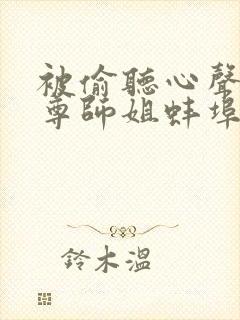 被偷聽心聲
尊師姐蚌埠
鈴木溫